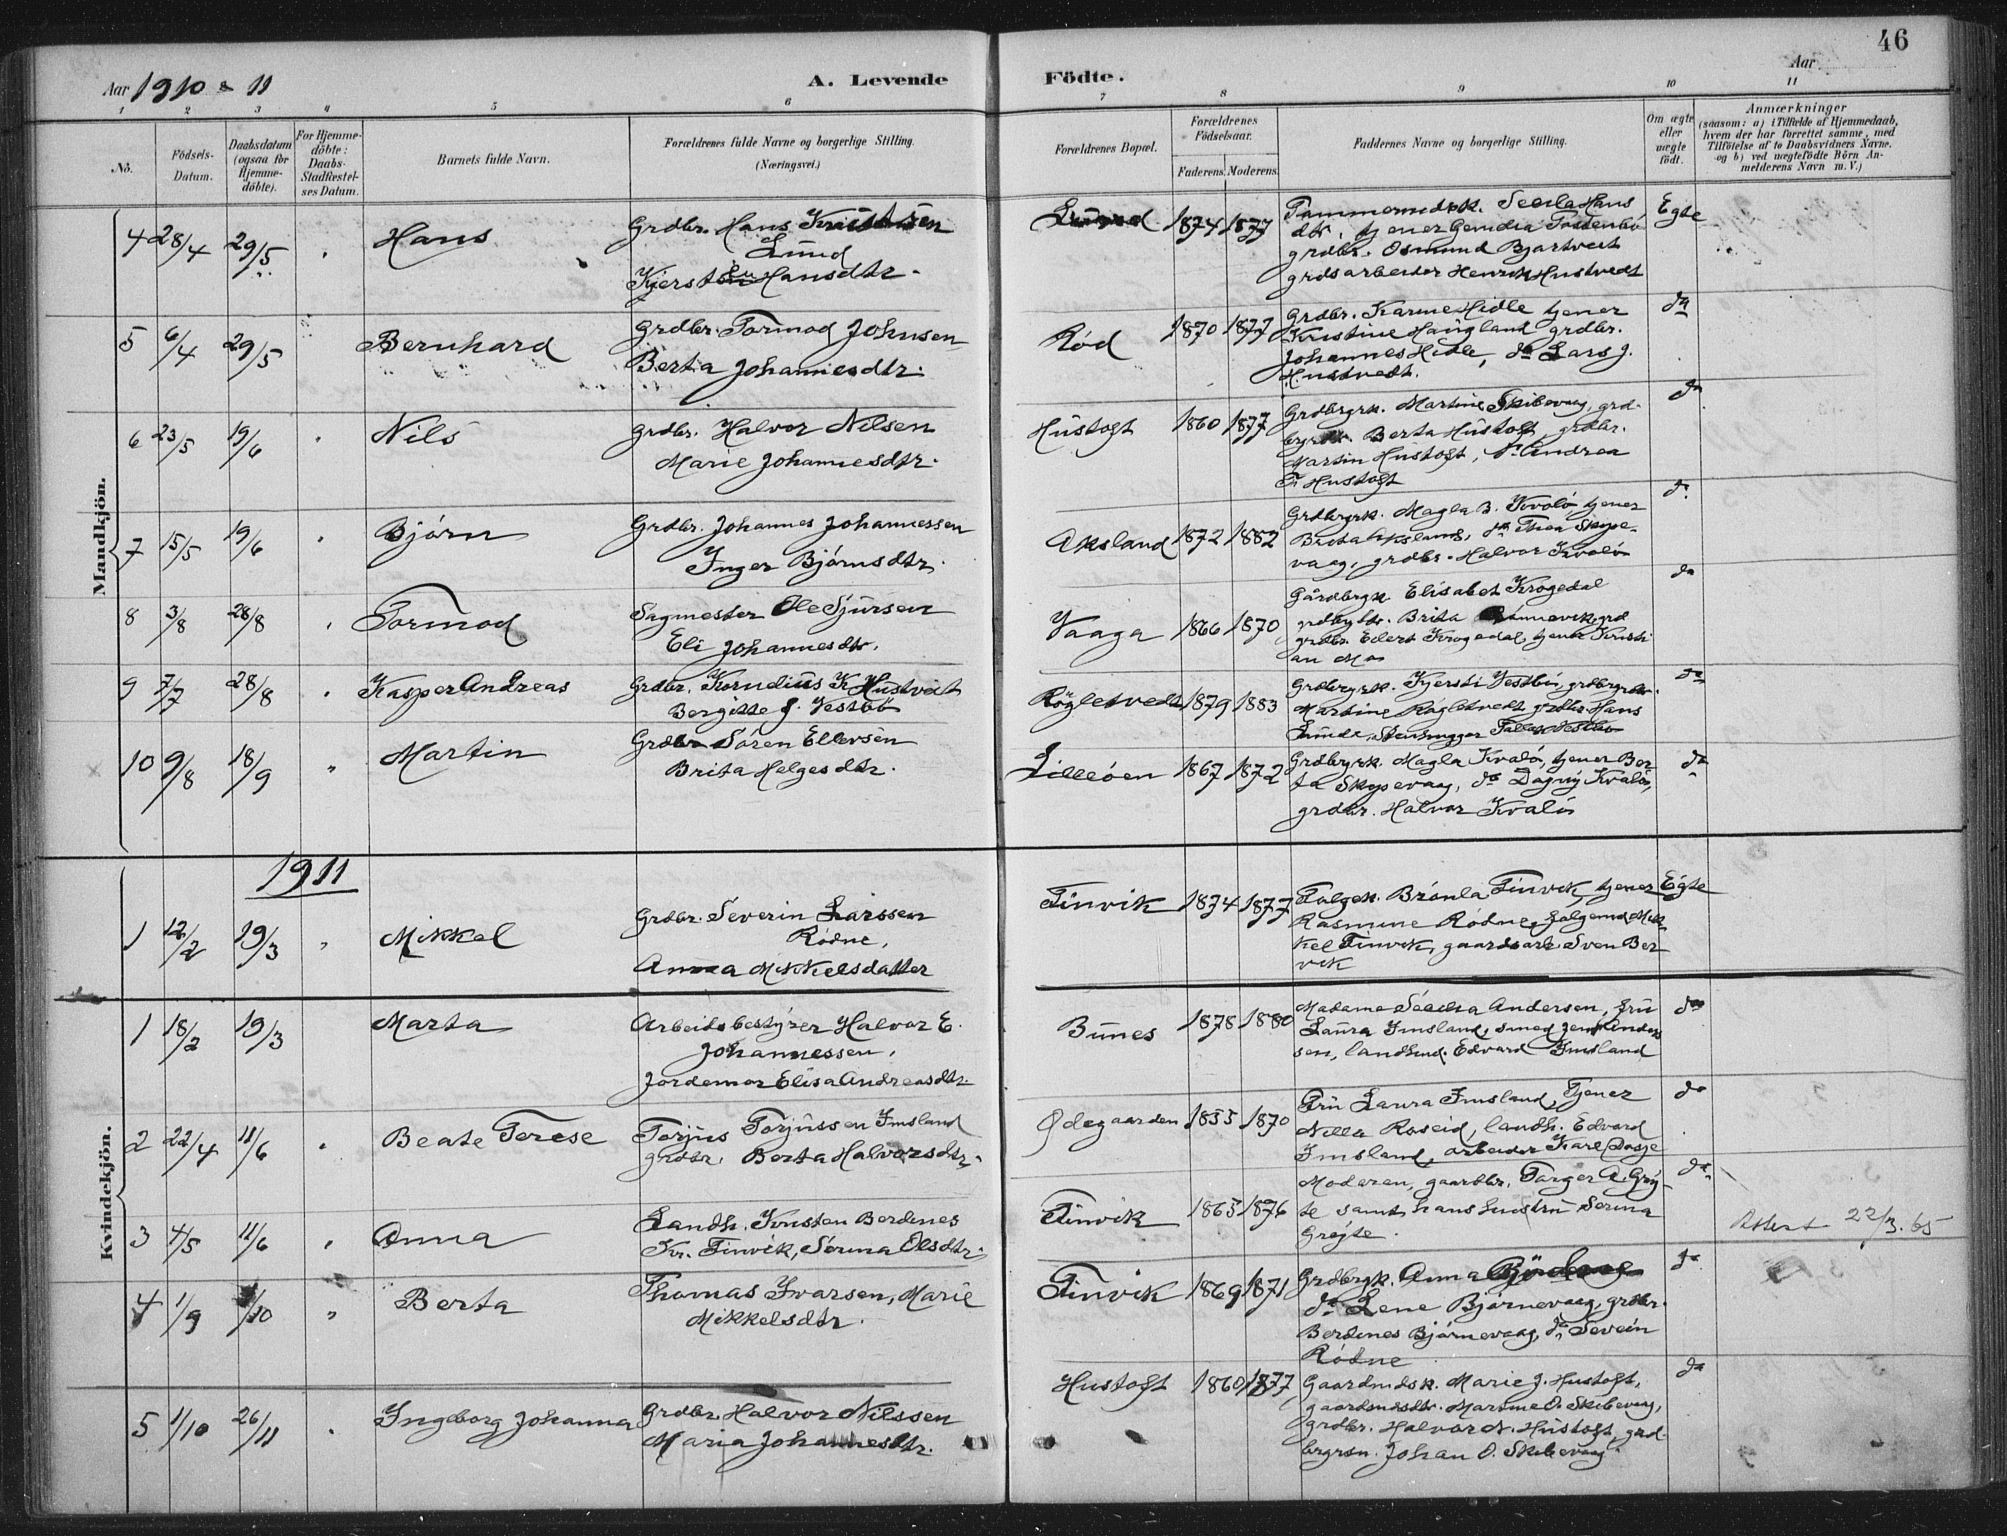 46
Aar 1910 & 11
A. Levende Födte.
Aar
1 2 3 4 5 6 7 8 9 10 11
No.
Födsels-
Datum.
Daabsdatum
(ogsaa for
Hjemme-
döbte).
For Hjemme-
döbte:
Daabs-
Stadfestel-
ses Datum.
Barnets fulde Navn.
Forældrenes fulde Navne og borgerlige Stilling.
(Næringsvei.)
Forældrenes Bopæl.
Forældrenes
Födselsaar.
Faderens. Moderens.
Faddernes Navne og borgerlige Stilling.
Om ægte
eller
uægte
født.
Anmærkninger
(saasom: a) i Tilfælde af Hjemmedaab,
hvem der har forrettet samme, med
Tilföielse af to Daabsvidners Navne.
og b) ved uægtefödte Börn An-
melderens Navn m. V.)
Mandkjön.
4 28/4 29/5 Hans
Grdbr. Hans
Lund
Hansdtr.
Lund 1874 1877
Hans
dtr, tjener
grdbr. Osmund Bjartveit
grdsarbeider Henrik Hustvedt
Egte
5 6/4 29/5 Bernhard
Grdbr. Tormod Johnsen
Berta Johannesdtr.
Rød 1870 1877
Grdbr. Karine Hidle tjener
Kristine Haugland grdbr.
Johannes Hidle, do Lars J.
Hustvedt.
do
6 23/5 19/6 " Nils
Grdbr. Halvor Nilsen
Marie Johannesdtr.
Hustoft 1860 1877
Grdbrgrk. Martine Skibevaag, grd-
Berta Hustoft, grdbr.
Martin Hustoft, do Andrea
T. Hustoft
do
7 15/5 19/6 " Bjørn
Grdbr. Johannes Johannessen
Inger Bjørnsdtr.
Aksland 1872 1882
Grdbrgrk. Magla B. Kvalø, tjener
Brita Aksland, do Thea Skype-
vaag, grdbr. Halvor Kvalø
do
8 3/8 28/8 " Tormod
Sagmester Ole Sjursen
Eli Johannesdtr.
Vaaga 1866 1870
Gårdbrgk Elisabet Krogedal
Brita
grdbr. Edert Krogedal, tjener Kristi
an Mo
do
9 7/7 28/8 " Kasper Andreas
Grdbr. Kornelius K Hustveit
Bergitte J. Vestbø
Røgletvedt 1879 1883
Grdbrgrk. Kjersti Vestbø, grdbrgrdtr.
Martine Røgletvedt grdbr. Hans
Lunde, Stenhugger
do
10 9/8 18/9 " Martin
Grdbr Sören Ellevsen
Brita Helgesdtr.
Lilleøen 1867 1872
Grdbrgrk. Magla Kvalø, tjener Ber
ta Skypevaag, do Dagny Kvalø,
grdbr. Halvor Kvalø
do
1911
1 12/2 19/3 " Mikkel
Grdbr. Severin Larssen
Rødne,
Anna Mikkelsdatter
Tinvik 1874 1877
Folgek. Brønla Tinvik, tjener
Rasmine Rødne, folgemd Mik
kel Tinvik, gaardsarb. Sven Ber
vik
Egte
Kvindekjön.
1 18/2 19/3 Marta
Arbeidsbestyrer Halvor E.
Johannessen,
Jordemor Elisa Andreasdtr.
Bunes 1878 1880
Madame Andersen, fru
Laura Imsland, smed Jens Anders
sen, landhnd. Edvard Imsland
do
2 22/4 11/6 " Beate Terese
Torjus Torjussen Imsland
grdbr. Berta Halvorsdtr.
Ødegaarden 1855 1870
Fru Laura Imsland, Tjener
Nilla Roseid, landh. Edvard
Imsland, arbeider Karl
do
3 4/5 11/6 " Anna
Landh. Kristen Berdines
Kr. Tinvik, Serina Olsdtr.
Tinvik 1865 1876
Moderen, gaardbr. Torger A Grøj-
te samt hans hustru Serina
Grøjte.
do
22/3.65
4 1/9 1/10 " Berta
Thomas Ivarsen, Marie
Mikkelsdtr.
Tinvik 1869 1871
Grdbrgk. Anna
do Lene Bjørnevaag, grdbr.
Berdines Bjørnevaag, do Severin
Rødne
do
5 1/10 26/11 " Ingeborg Johanna
Grdbr. Halvor Nilssen
Maria Johannesdtr.
Hustoft 1860 1877
Gaardmdsk. Marie J. Hustoft,
gaardmdsdtr. Martine O. Skibevaag,
grdbr. Halvor N. Hustoft, grd-
brgrsn. Johan O. Skibevaag
do